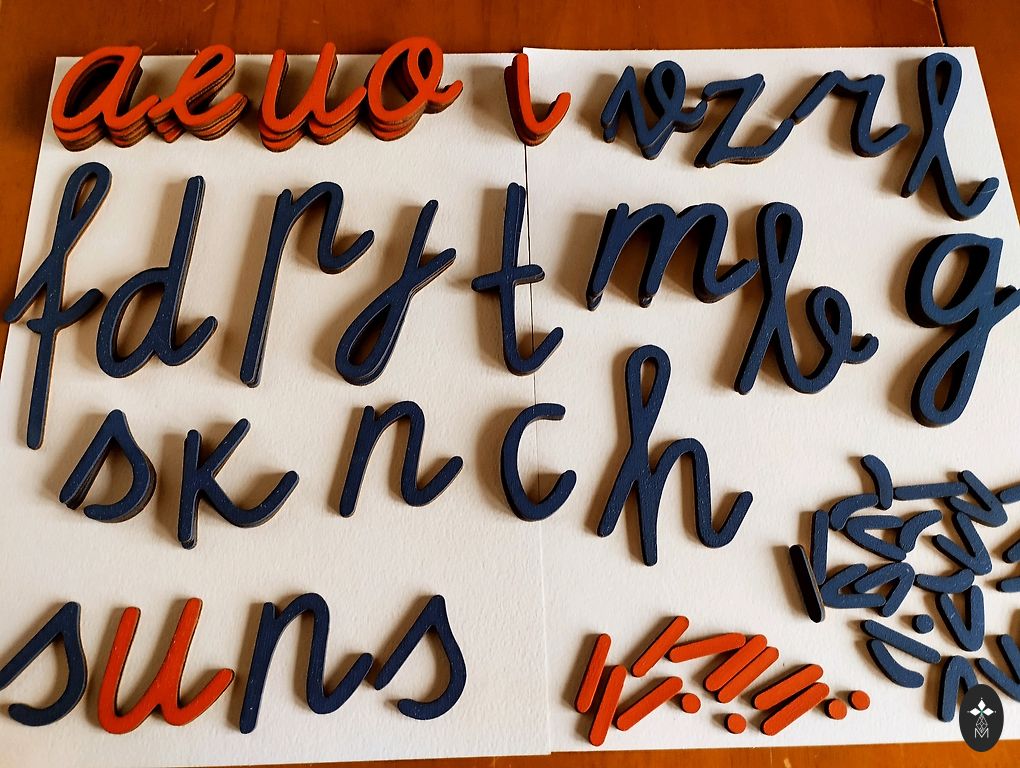 a e u o i v z r l
f d p j t m b g
s k n c h
suns
M